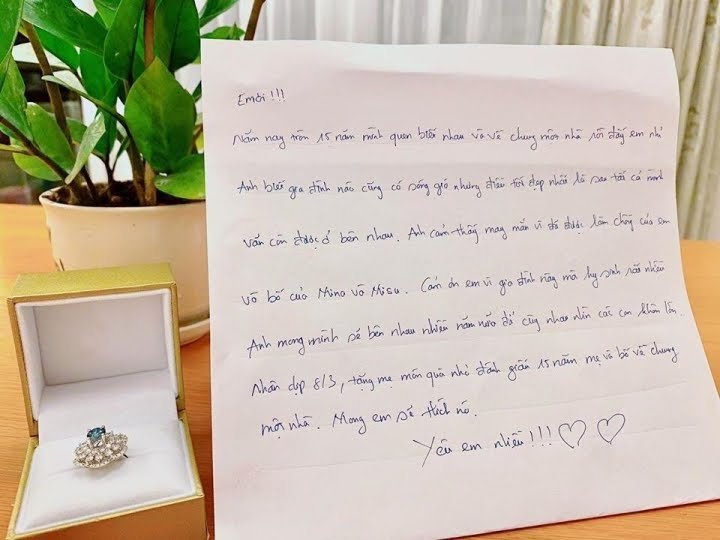 Em ơi !!!
Năm nay tròn 15 năm mình quen biết nhau và về chung một nhà rồi đấy em nhỉ
Anh biết gia đình nào cũng có sóng gió nhưng điều tốt đẹp nhất là sau tất cả mình
vẫn còn được ở bên nhau. Anh cảm thấy may mắn vì đã được làm chồng của em
và bố của Mino và Misu. Cảm ơn em vì gia đình này mà hy sinh rất nhiều
Anh mong mình sẽ bên nhau nhiều năm nữa để cùng nhau nhìn các con khôn lớn.
Nhân dịp 8/3, tặng mẹ món quà nhỏ đánh giấu 15 năm mẹ và bố về chung
một nhà. Mong em sẽ thích nó.
Yêu em nhiều !!!